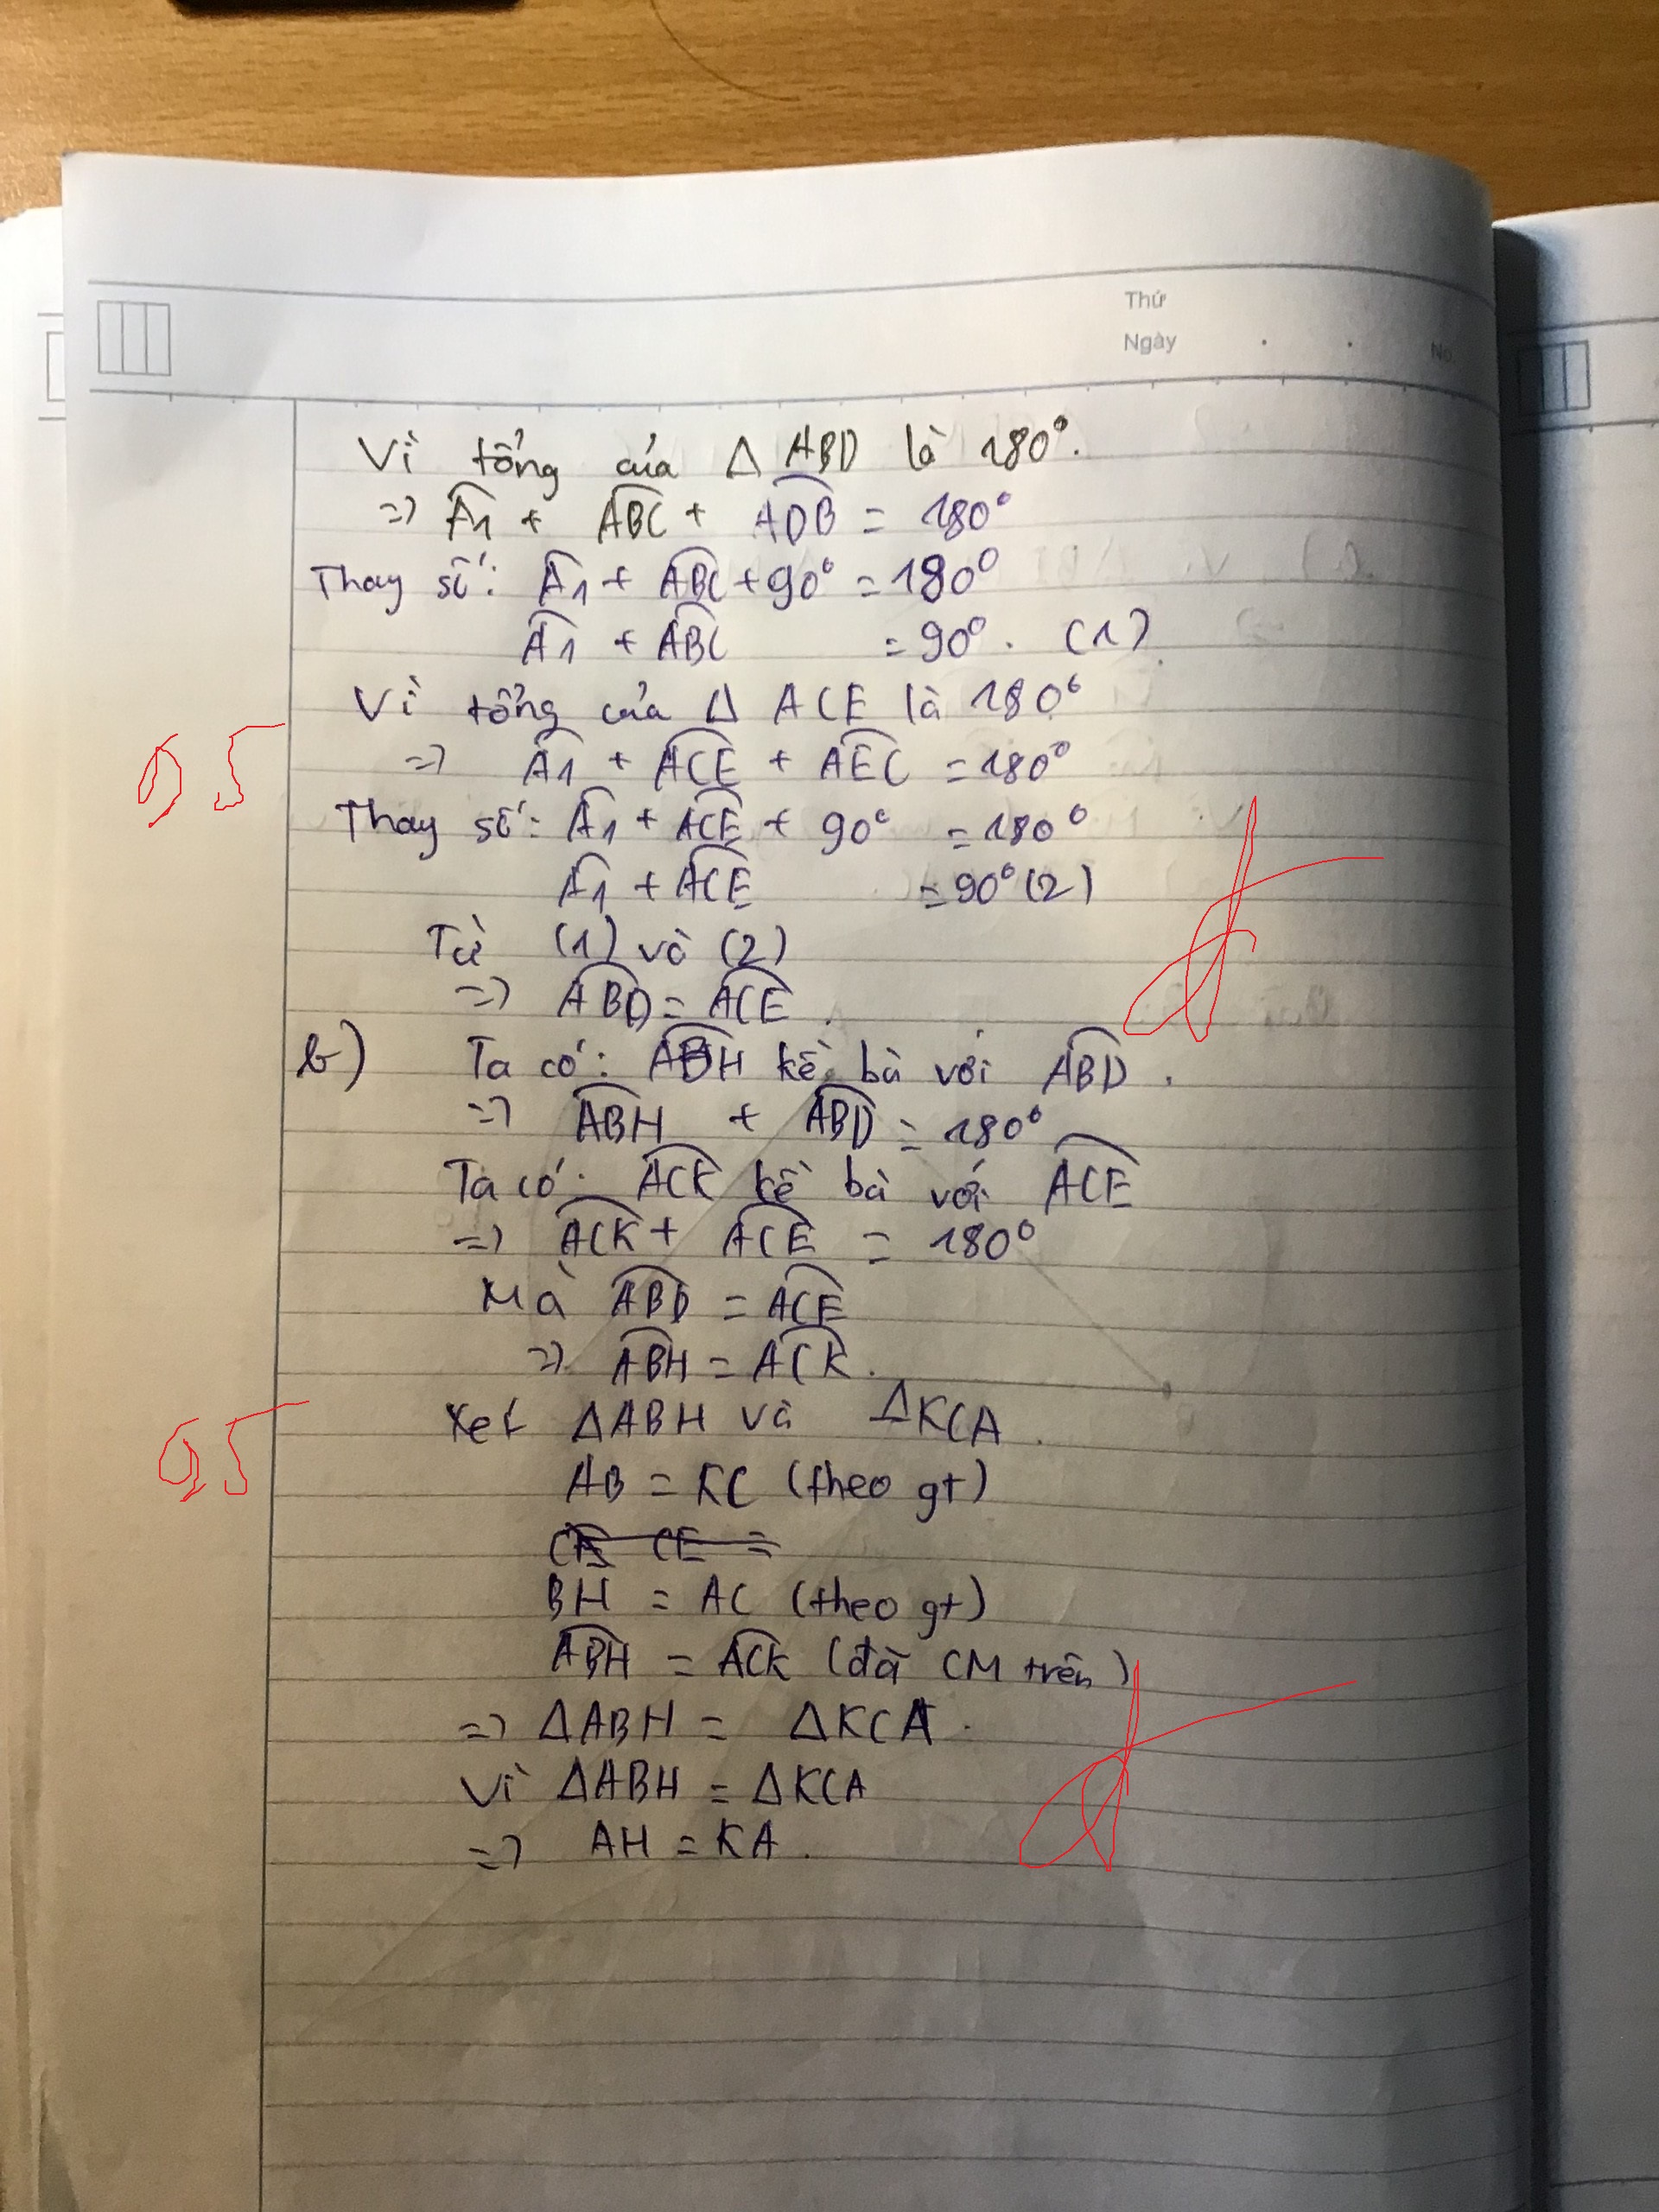 Thứ
Ngày
No.
Vì tổng của Δ ABD là 180°.
=> Â1 + ABC + ADB = 180°
Thay số: Â1 + ABC + 90° = 180°
Â1 + ABC = 90°. (1)
Vì tổng của Δ ACE là 180°
=> Â1 + ACE + AEC = 180°
0,5
Thay số: Â1 + ACE + 90° = 180°
Â1 + ACE = 90° (2)
Từ (1) và (2)
=> ABD = ACE.
b) Ta có: ABH kề bù với ABD.
=> ABH + ABD = 180°
Ta có: ACK kề bù với ACE
=> ACK + ACE = 180°
Mà ABD = ACE
=> ABH = ACK.
Xét ΔABH và ΔKCA.
0,5
AB = KC (theo gt)
CE =
BH = AC (theo gt)
ABH = ACK (đã CM trên)
=> ΔABH = ΔKCA.
Vì ΔABH = ΔKCA
=> AH = KA.